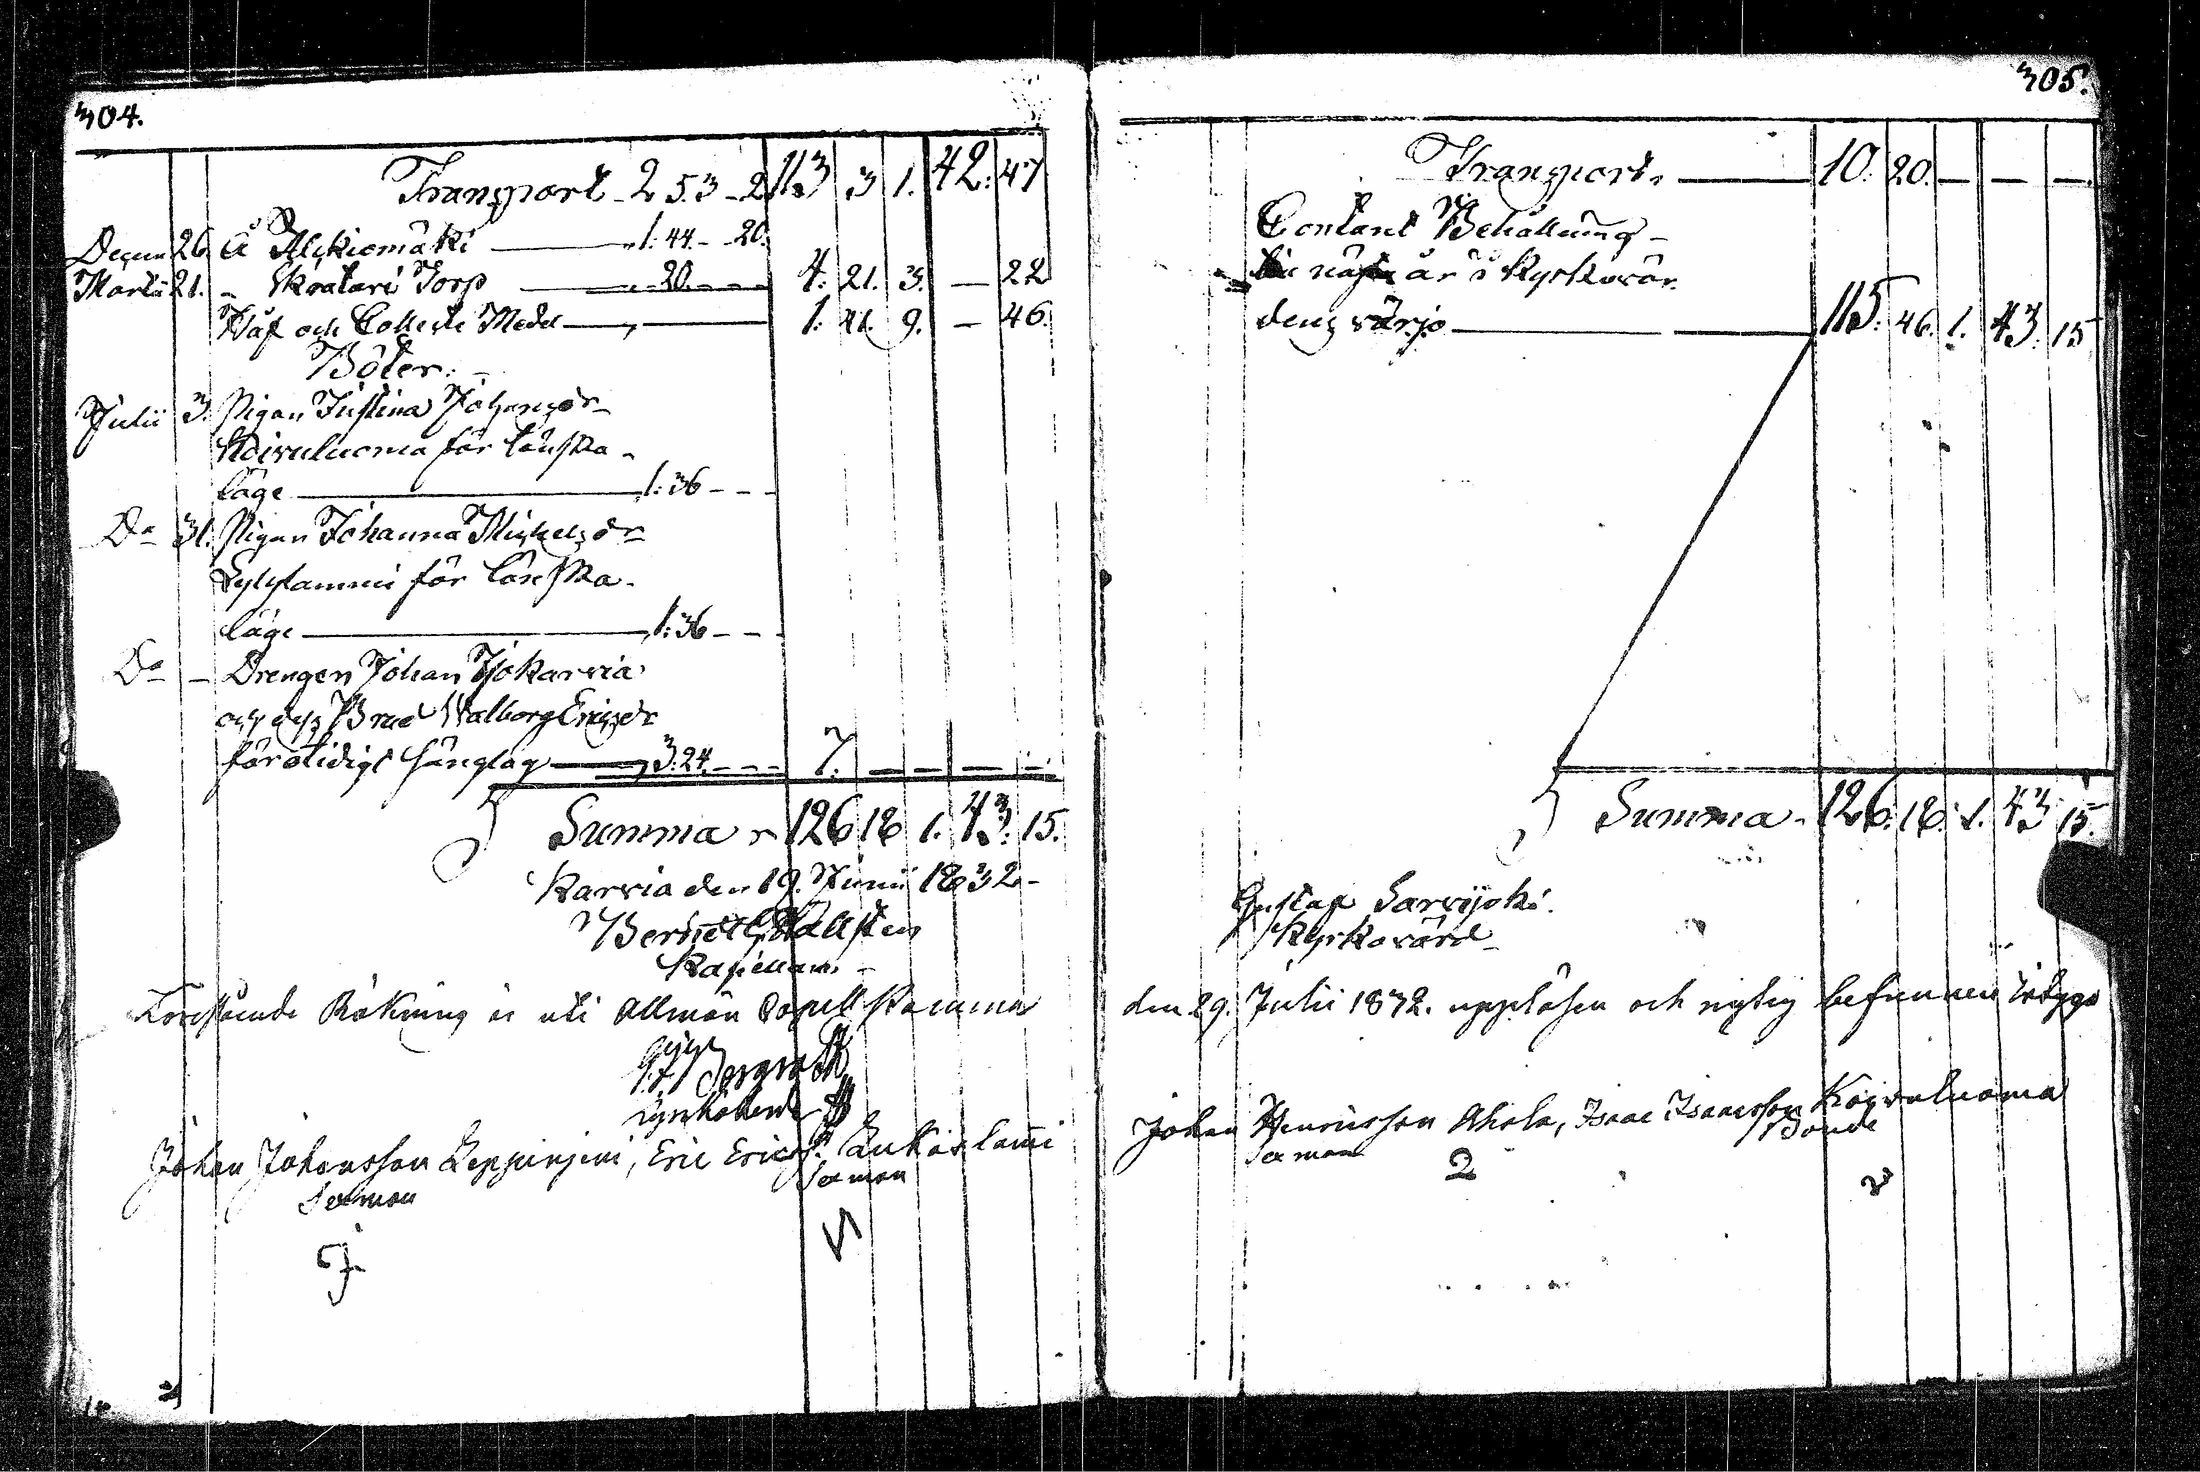 304.
Transport 253 - 2 113 3 1. 42. 47
Decem 26. Å Alckiomäki 1. 44. - 20.
Martii 21. - Skratari Torp 20. 4. 21. 3. - 22
Håf och Collecte Medel 1. 41. 9. - 46.
Böter:
Julii 3. Pigan Justina Johansdr
Koivuluoma för lönska
läge 1: 36 - - -
Do 31. Pigan Johanna Michelsdr
för lönska
läge 1: 36 - - -
Do - Drengen Johan Karvia
och dess Brud Walborg Ericsdr
för otidigt sänglag 3: 24. - - - 7. - - - -
Summa 126 18 1. 43. 15.
Karvia den 19. Junii 1832
Hällsten
Kapellan
Förestående Räkning är uti Allmän Capell stämma
Bergroth
kyrkoherde
Johan Johansson Leppinjemi, Eric Ericss.
Sexman Sexman
305.
Transport. 10. 20. - - -
Contant Behållning
till nästa år i Kyrkovär
dens värjo 115. 46. 1. 43. 15
Summa 126. 18. 1. 43 15.
Gustaf Sarvijoki.
Kyrkovärd
den 29. Julii 1832. uppläsen och rigtig befunnen
Johan Henricsson Ahola, Isaac Isaacsson Koivuluoma
Sexman Bonde
2